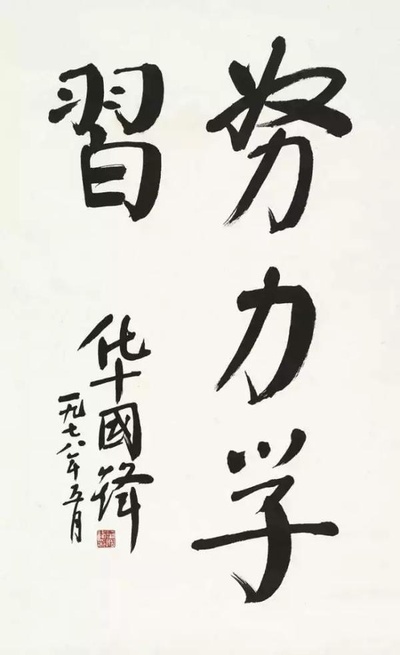 努力学
習
华國鋒
一九七八年五月